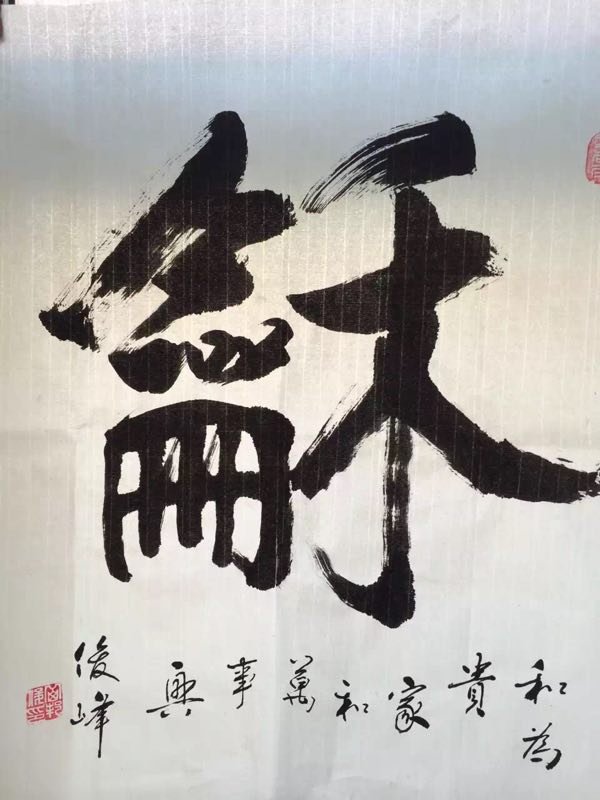 龢
和為
貴
家
和
萬
事
興
俊峰